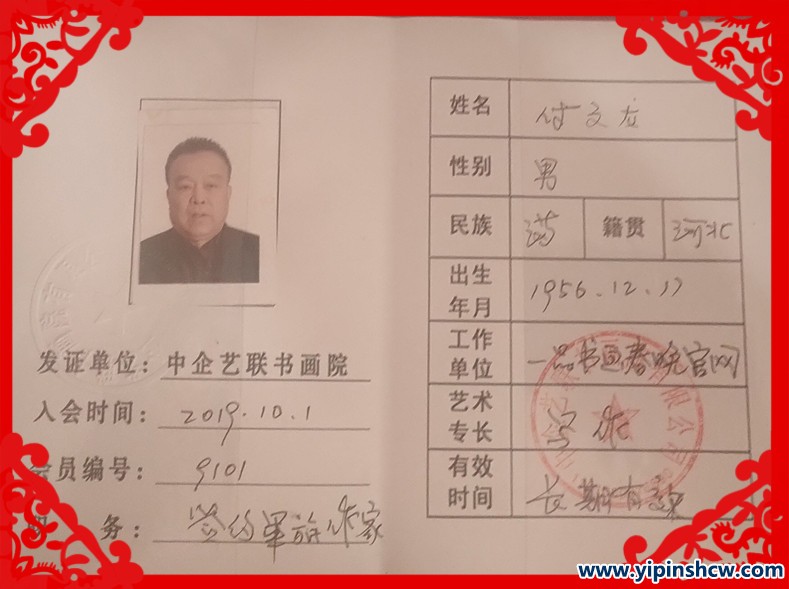 发证单位：中企艺联书画院
入会时间：2019.10.1
会员编号：9101
职务：签约军旅作家
姓名 付文应
性别 男
民族 满 籍贯 河北
出生年月 1956.12.17
工作单位 一品书画春晚官网
艺术专长 写作
有效时间 长期有效
www.yipinshcw.com